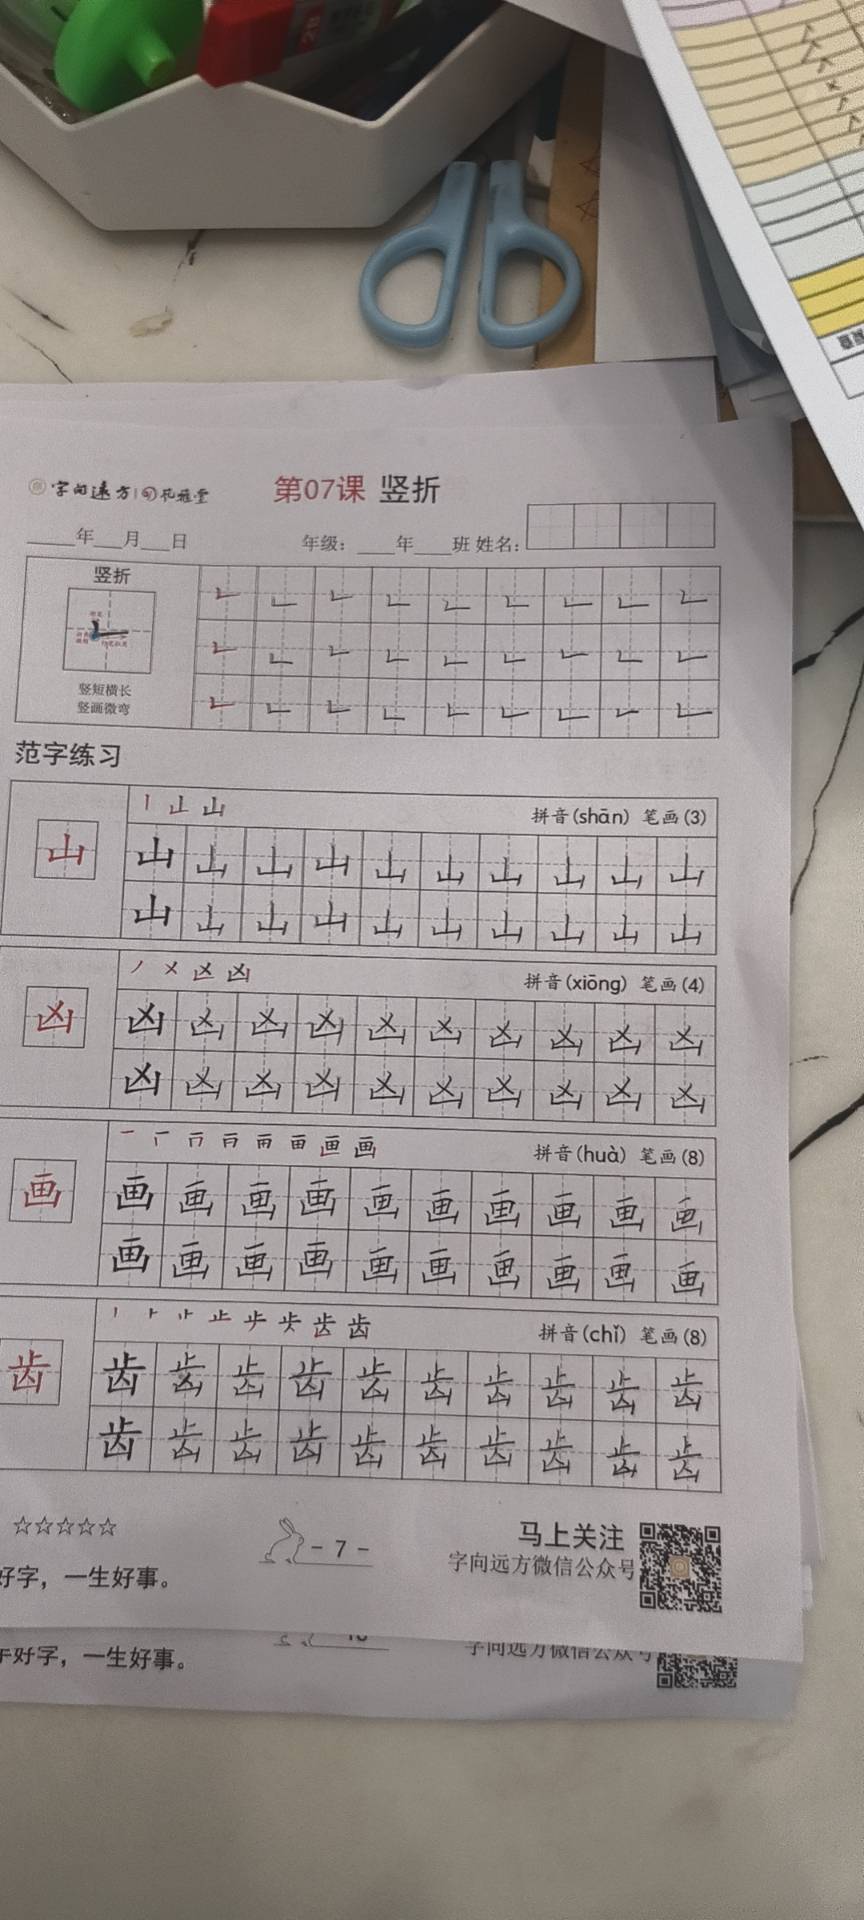 字向远方
第07课 竖折
____年___月___日 年级：____年____班 姓名：
竖折
竖短横长
竖画微弯
范字练习
山 拼音(shān) 笔画(3)
山 山山山山山山山山山山
山山山山山山山山山山
凶 拼音(xiōng) 笔画(4)
凶 凶凶凶凶凶凶凶凶凶凶
凶凶凶凶凶凶凶凶凶凶
画 拼音(huà) 笔画(8)
画 画画画画画画画画画画
画画画画画画画画画画
齿 拼音(chǐ) 笔画(8)
齿 齿齿齿齿齿齿齿齿齿齿
齿齿齿齿齿齿齿齿齿齿
☆☆☆☆☆
- 7 -
马上关注
字向远方微信公众号
好字，一生好事。
好字，一生好事。
字向远方微信公众号